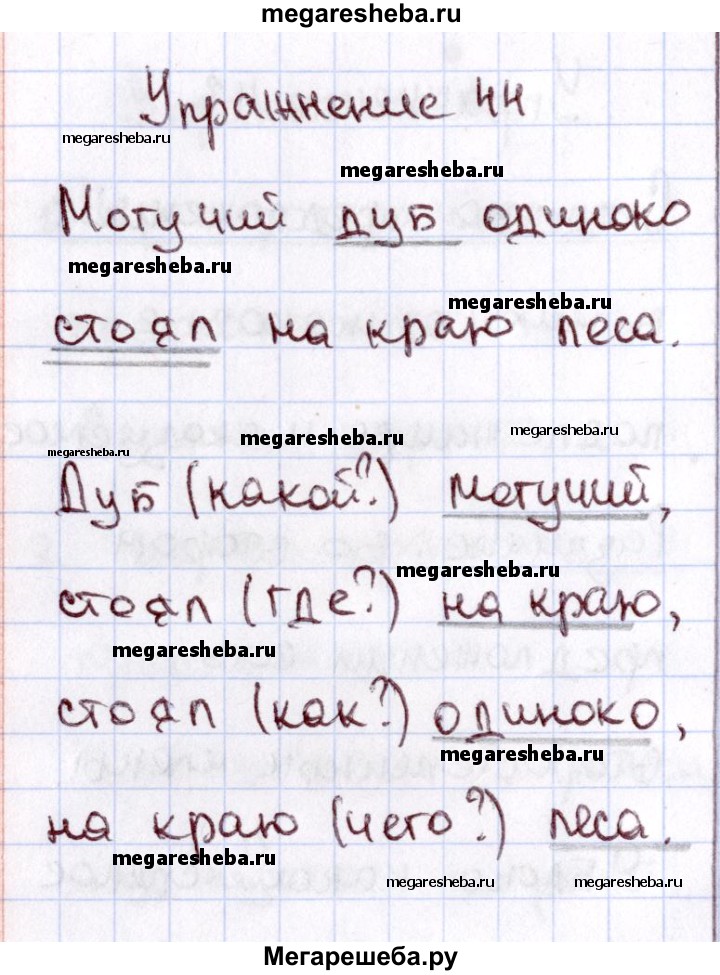 megaresheba.ru
Упражнение 44
megaresheba.ru
megaresheba.ru
Могучий дуб одиноко
megaresheba.ru
megaresheba.ru
стоял на краю леса.
megaresheba.ru
megaresheba.ru
megaresheba.ru
Дуб (какой?) могучий,
megaresheba.ru
стоял (где?) на краю,
megaresheba.ru
стоял (как?) одиноко,
megaresheba.ru
на краю (чего?) леса.
megaresheba.ru
megaresheba.ru
megaresheba.ru
Мегарешеба.ру